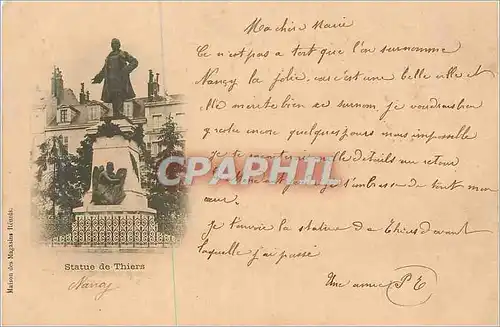 Ma chère Marie
Ce n'est pas a tort que l'on surnomme
Nançy la jolie, car c'est une belle ville et
elle mérite bien ce surnom. je voudrais bien
y rester encore quelques jours mais impossible
je te les détails au retour
CAPHIL
je t'embrasse de tout mon
cœur.
je t'envoie la statue de Thiers devant
laquelle j'ai passé
Une amie P E
Statue de Thiers
Nancy
Maison des Magasins Réunis.